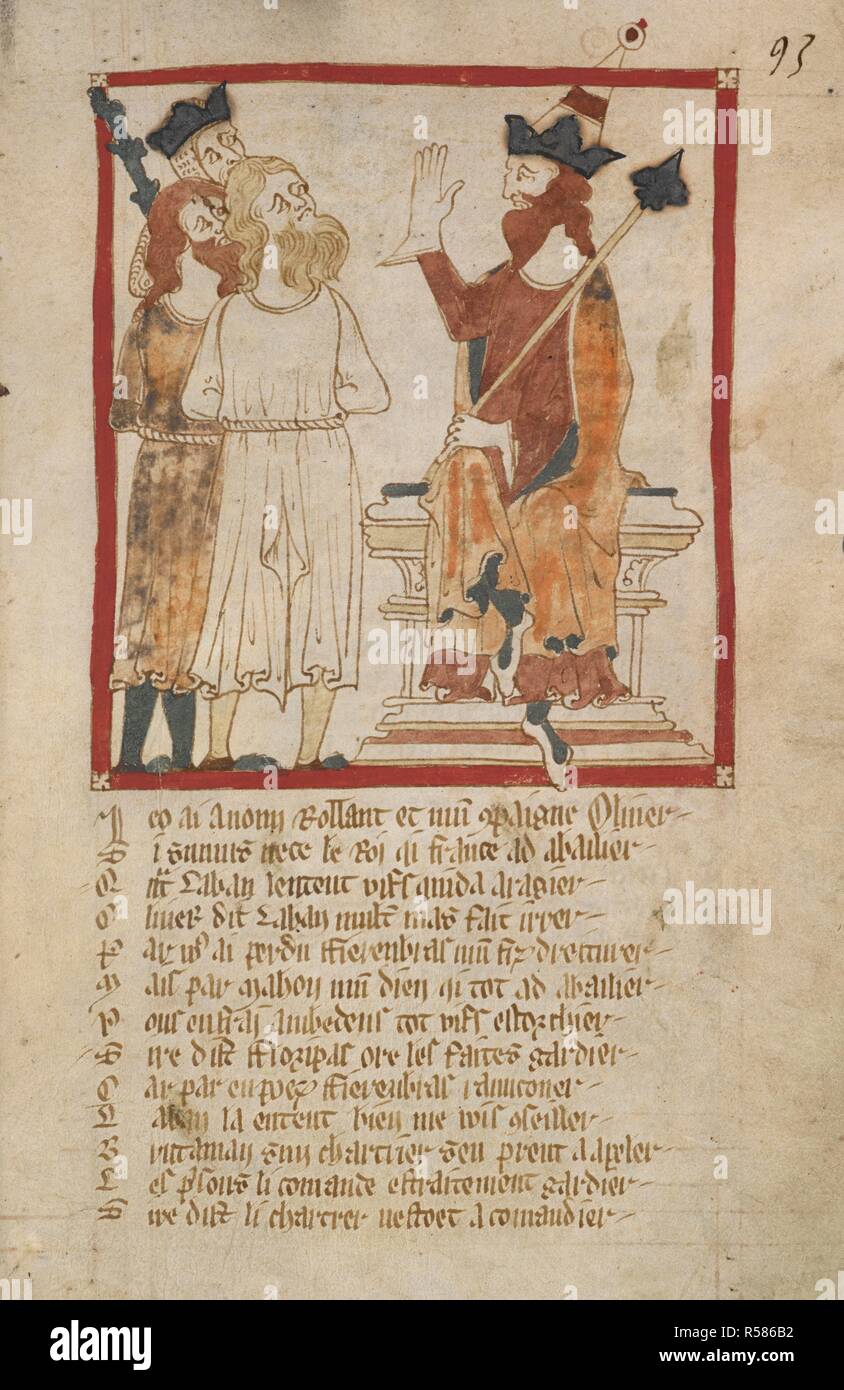 93
I eo ai anonn Rollant et mun 9paigne Oliver
S i sumus nece le Roi qi france ad abailier
Q nt Laban lentent vifs quida aragier
O liver dit Laban mult mas fait irrer
P ar vus ai perdu ffierenbras mun fiz drecturer
M ais par Mahon mun dieu qi tot ad abailier
V ous enfrai ambedeus tot vifs estorchier
S ire dist ffloripas ore les faites gardier
C ar par eu poez ffierenbras raunconer
L aban la entent bien me vois 9seiller
B rutaman sun chartrier seu prent a apeler
L es prisons li comande estraitement gardier
S ire dist li chartrer vestoet a comaudier
alamy
Image ID: R586B2
www.alamy.com